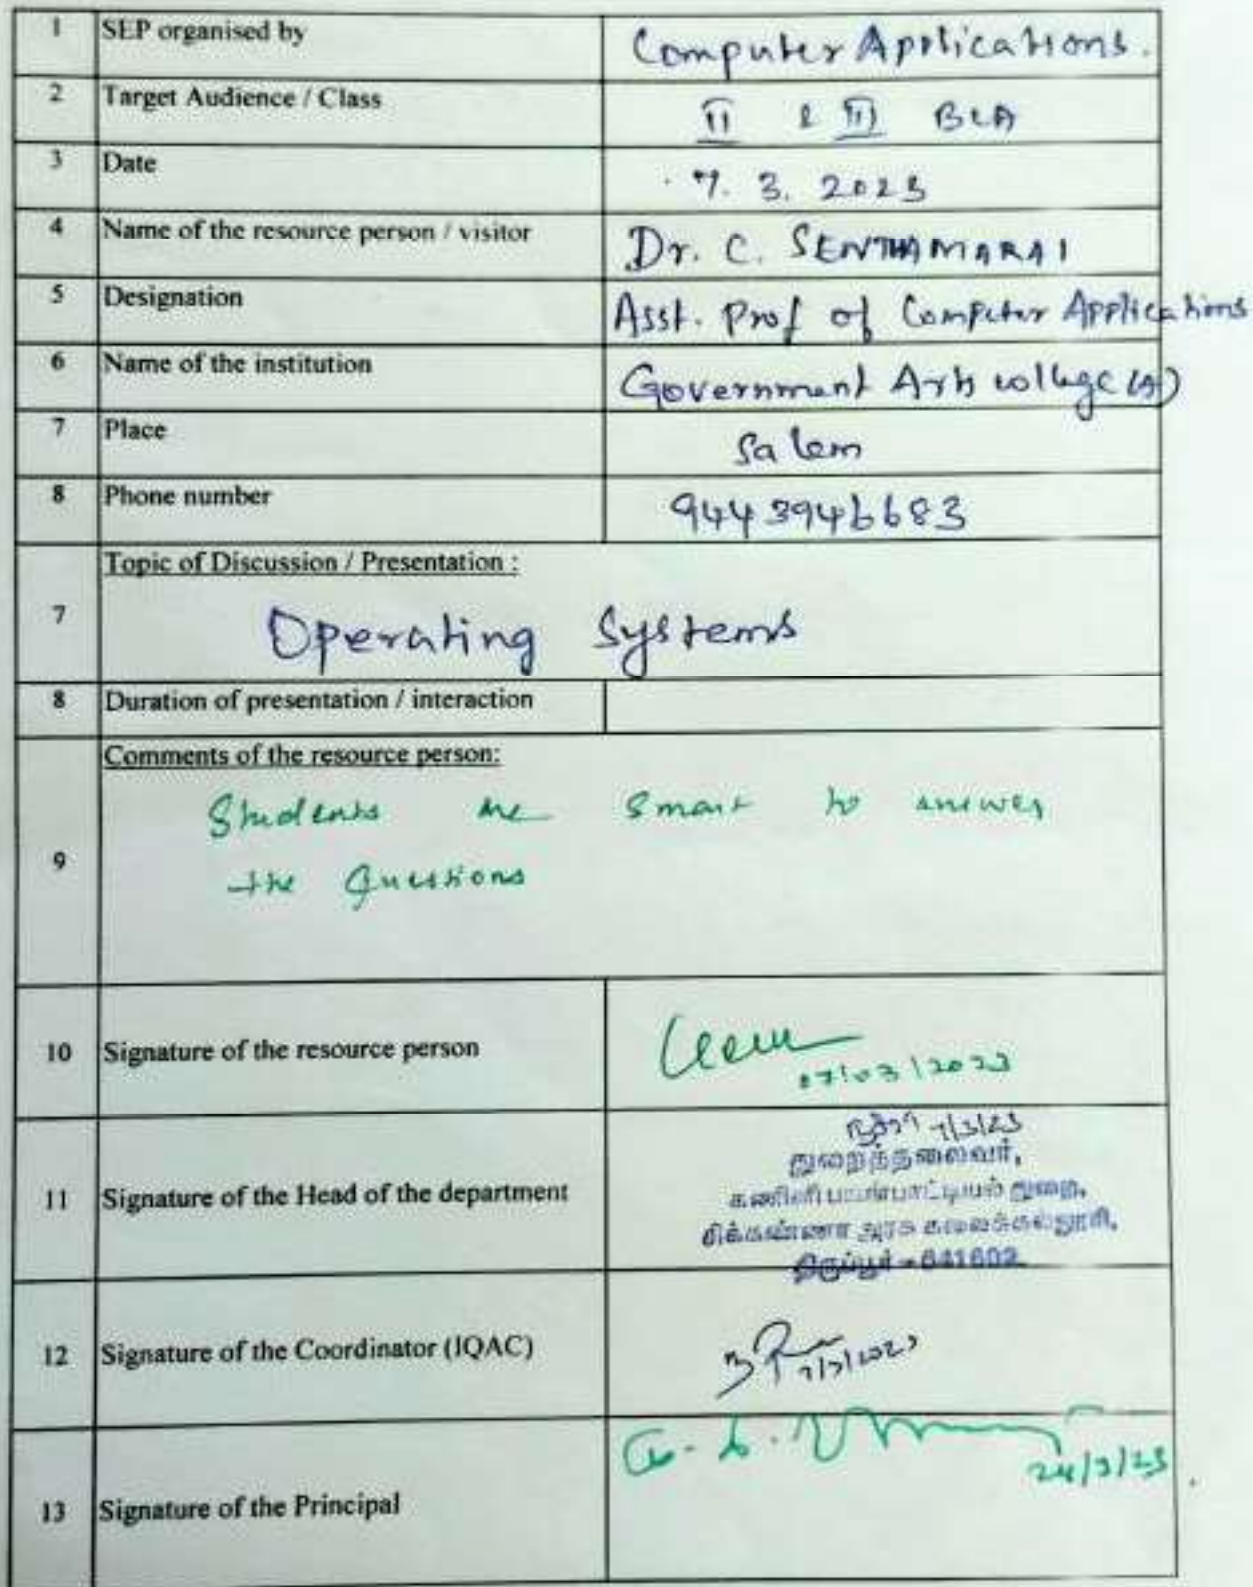 1 SEP organised by Computer Applications.
2 Target Audience / Class II & III BCA
3 Date 7. 3. 2023
4 Name of the resource person / visitor Dr. C. SENTHAMARAI
5 Designation Asst. Prof of Computer Applications
6 Name of the institution Government Arts college (A)
7 Place Salem
8 Phone number 9443946683
Topic of Discussion / Presentation :
7 Operating Systems
8 Duration of presentation / interaction
Comments of the resource person:
Students are smart to answer
9
the Questions
10 Signature of the resource person
07/03/2023
7/3/23
துறைத்தலைவர்,
11 Signature of the Head of the department
கணினி பயன்பாட்டியல் துறை,
சிக்கண்ணா அரசு கலைக்கல்லூரி,
திருப்பூர் - 641602.
12 Signature of the Coordinator (IQAC) 7/3/2023
24/3/23
13 Signature of the Principal